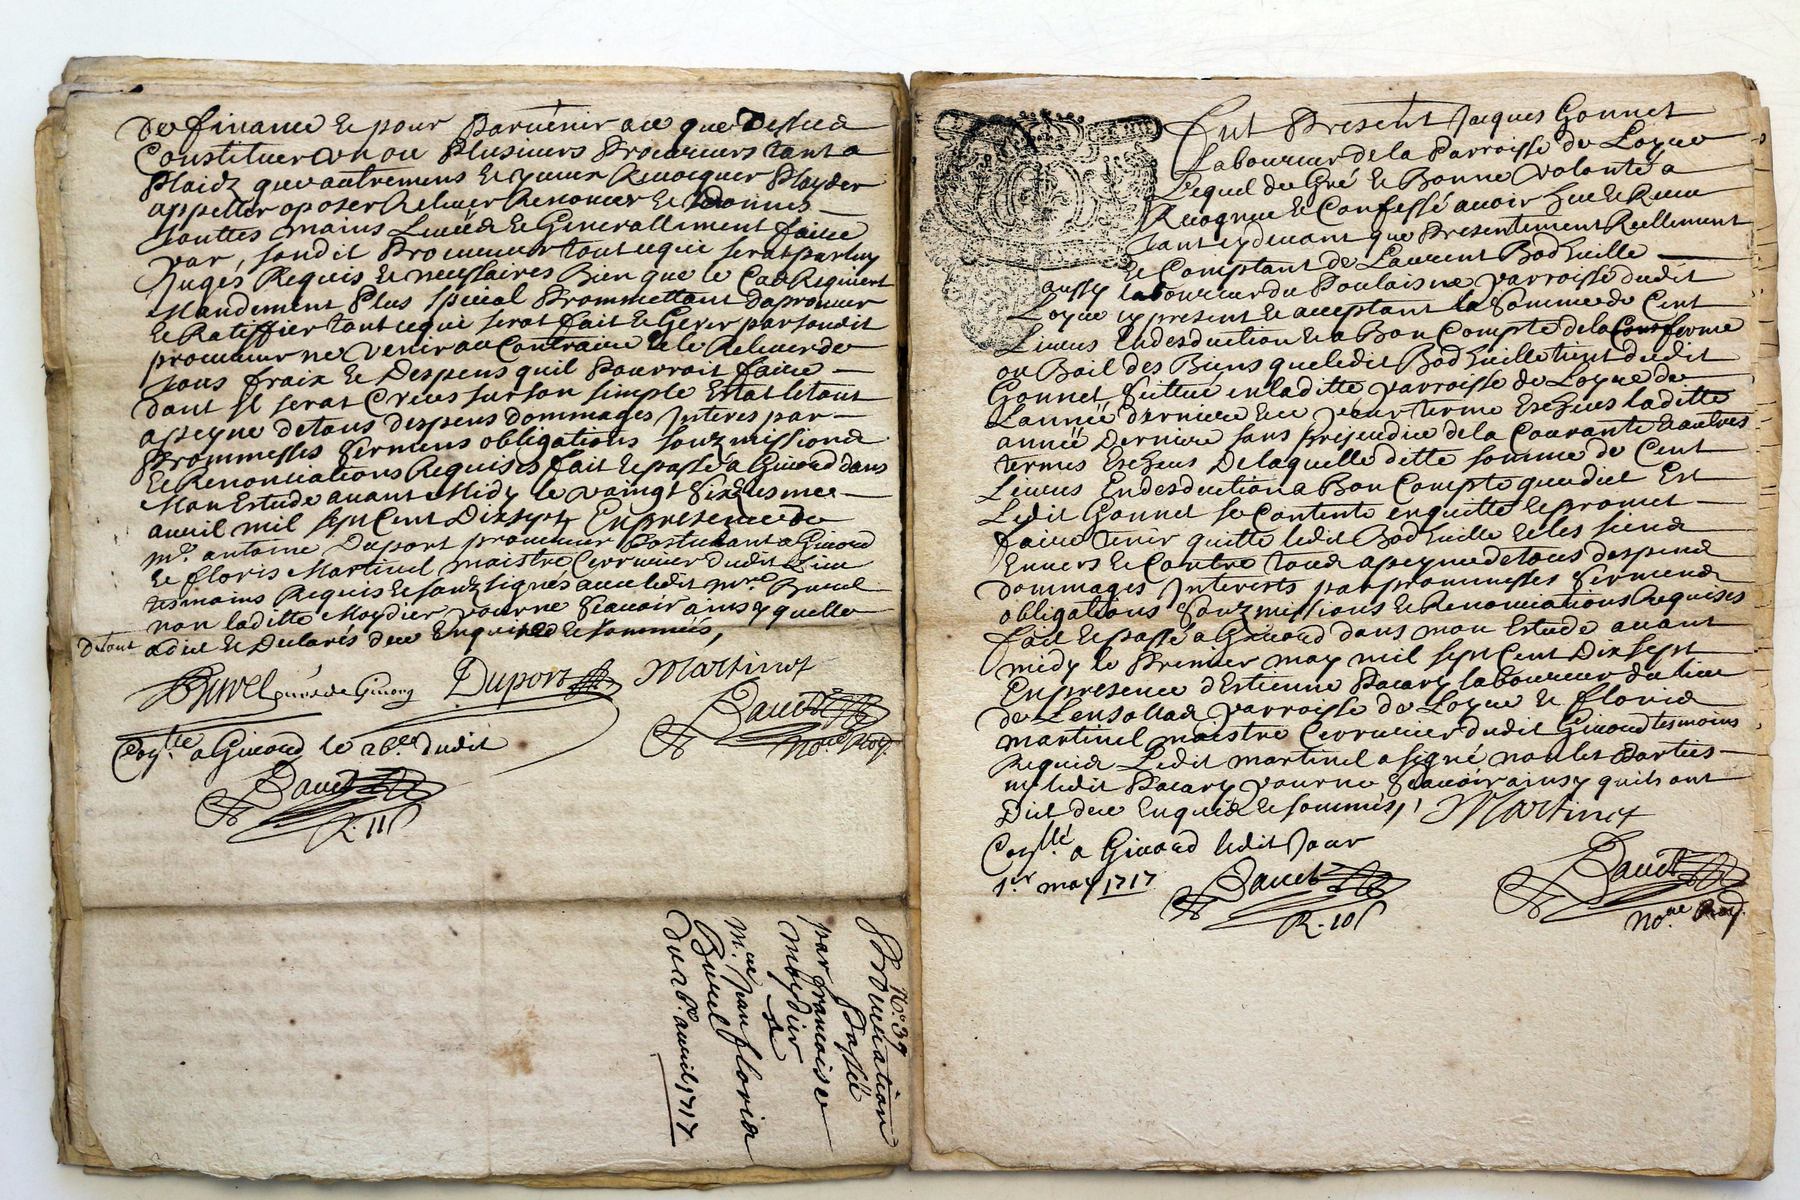 de finance et pour Parvenir a ce que Dessus
Constituer un ou Plusieurs Procureurs tant a
Plaidz que autrement et yceux Revocquer Playder
appeller oposer Relever Renoncer et Donner
touttes mains Levée et Generallement faire
par, sondit Procureur tout ce qui serat par luy
Jugés Requis et necessaires Bien que le Cas Requiert
Mandement Plus special Promettant daprouver
et Ratiffier tout ce qui serat fait et Gerer par sondit
procureur ne venir au Contraire et le Relever de
tous fraix et Despens quil Pourroit faire
dont Il serat Creus sur son simple Estat le tout
a peyne de tous despens dommages Interes par
Prommesses Sermens obligations Soubzmissions
et Renonciations Requises fait et passé a Givord dans
Mon Estude avant Midy le vaingt Sixiesme
avril mil sept Cent Dix sept En presence de
mre. antoine Duport procureur Postullant a Givord
et floris Martinet maistre Cerrurier dudit Lieu
tesmoins Requis et soubzsignés avec ledit mre Buvel
non laditte Moydier pour ne Scavoir ainsy quelle
De tout a dit et Declarés de ce Enquized et sommés,
Buvel curé de Givord Duport Martinet
Conllé a Givord le 26e dudit
nore Roy.
R. 11 s
No. 39
Procuration
Passée
par francoise
moydier
a
mre. Jean floris
Buvel
du 26e. avril 1717
Fut Present Jacques Gonnet
Laboureur de la Parroisse de Loyre
Lequel de Gré et Bonne volonté a
Recognu et Confessé avoir heu et Receu
tant cy devant que Presentement Reellement
et Comptant de Laurent Bodheille
aussy laboureur du Poulaisne parroisse dudit
Loyre cy present et acceptant la Somme de Cent
Livres En desduction et a Bon Compte de la Cense ferme
ou Bail des Biens que ledit Bodheille tient dudit
Gonnet Scittué en laditte parroisse de Loyre de
Lannée derniere et ce pour terme Escheus laditte
année Derniere sans Prejeudice de la Courante et autres
termes Escheus De laquelle ditte somme de Cent
Livres En desduction a Bon Compte que dict Est
Ledit Gonnet se Contente en quitte et promet
faire tenir quitte ledit Bodheille et les siens
Envers et Contre tous a peyne de tous despens
Dommages Interests par prommesses Sermens
obligations Soubzmissions et Renonciations Requises
fait et passé a Givord dans mon Estude avant
midy le Premier may mil sept Cent Dix sept
En presence d'Estienne Pacary laboureur du lieu
de Lensollas parroisse de Loyre et floris
martinet maistre Cerrurier dudit Givord tesmoins
Requis Ledit martinet a signé non les Parties
ny ledit Pacary pour ne Scavoir ainsy quils ont
Dict de ce Enquis et sommés, Martinet
Conllé a Givord ledit Jour
1er may 1717
R. 10 s
nore Roy.